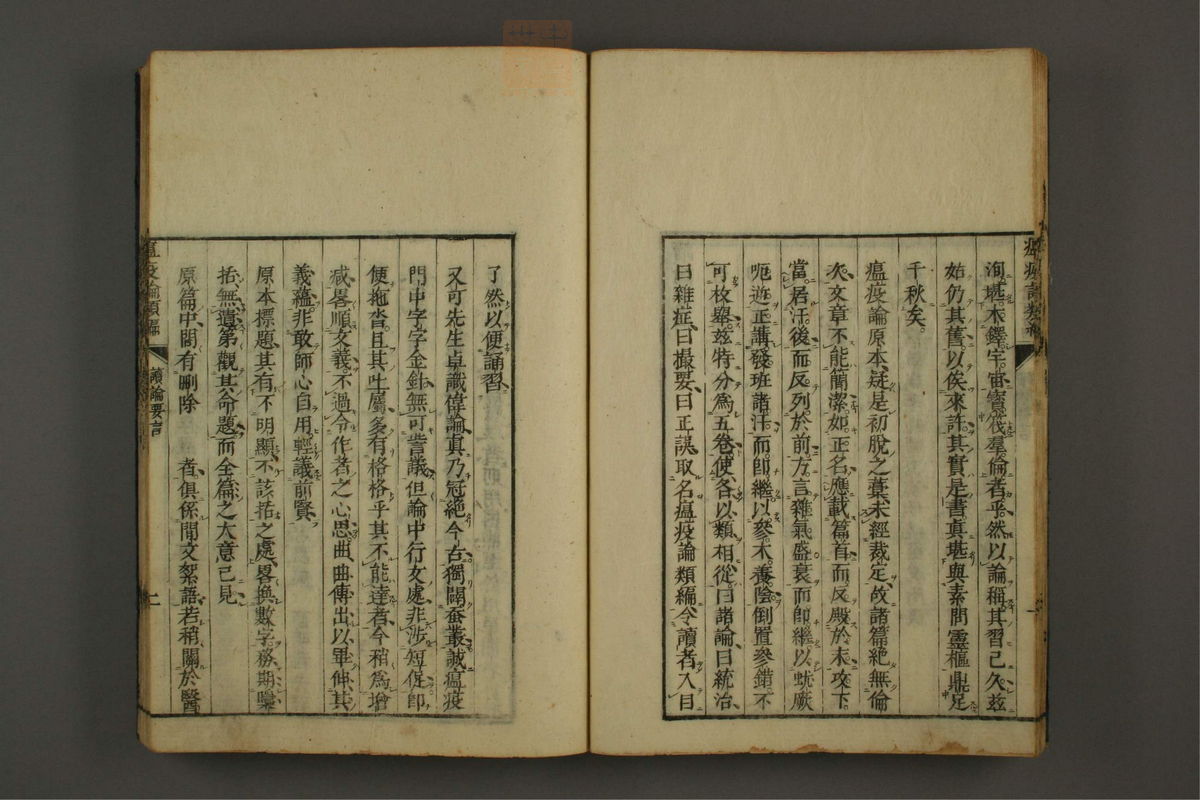 洵堪木鐸宇宙寶筏羣倫者乎然以論稱其習已久茲
始仍其舊以俟來許其實是書真堪與素問靈樞鼎足
千秋矣
瘟疫論原本疑是初脫之藁未經裁定故諸篇絕無倫
次文章不能簡潔如正名應載篇首而反殿於末攻下
當居汗後而反列於前方言雜氣盛衰而即繼以蚘厥
呃逆正講發斑諸汗而即繼以參木養陰倒置參錯不
可枚舉茲特分為五卷使各以類相從曰諸論曰統治
曰雜症曰撮要曰正誤取名瘟疫論類編令讀者入目
了然以便誦習
又可先生卓識偉論真乃冠絕今古獨闢蚕叢誠瘟疫
門中字字金針無可訾議但論中行文處非涉短促即
便拖沓且其吐屬多有格格乎其不能達者今稍為增
减畧順文義不過令作者之心思曲曲傳出以畢伸其
義蘊非敢師心自用輕議前賢
原本標題其有不明顯不該括之處畧換數字務期櫽
括無遺第觀其命題而全篇之大意已見
原篇中間有刪除者俱係閒文絮語若稍關於醫
瘟疫論類編
讀論要言
二